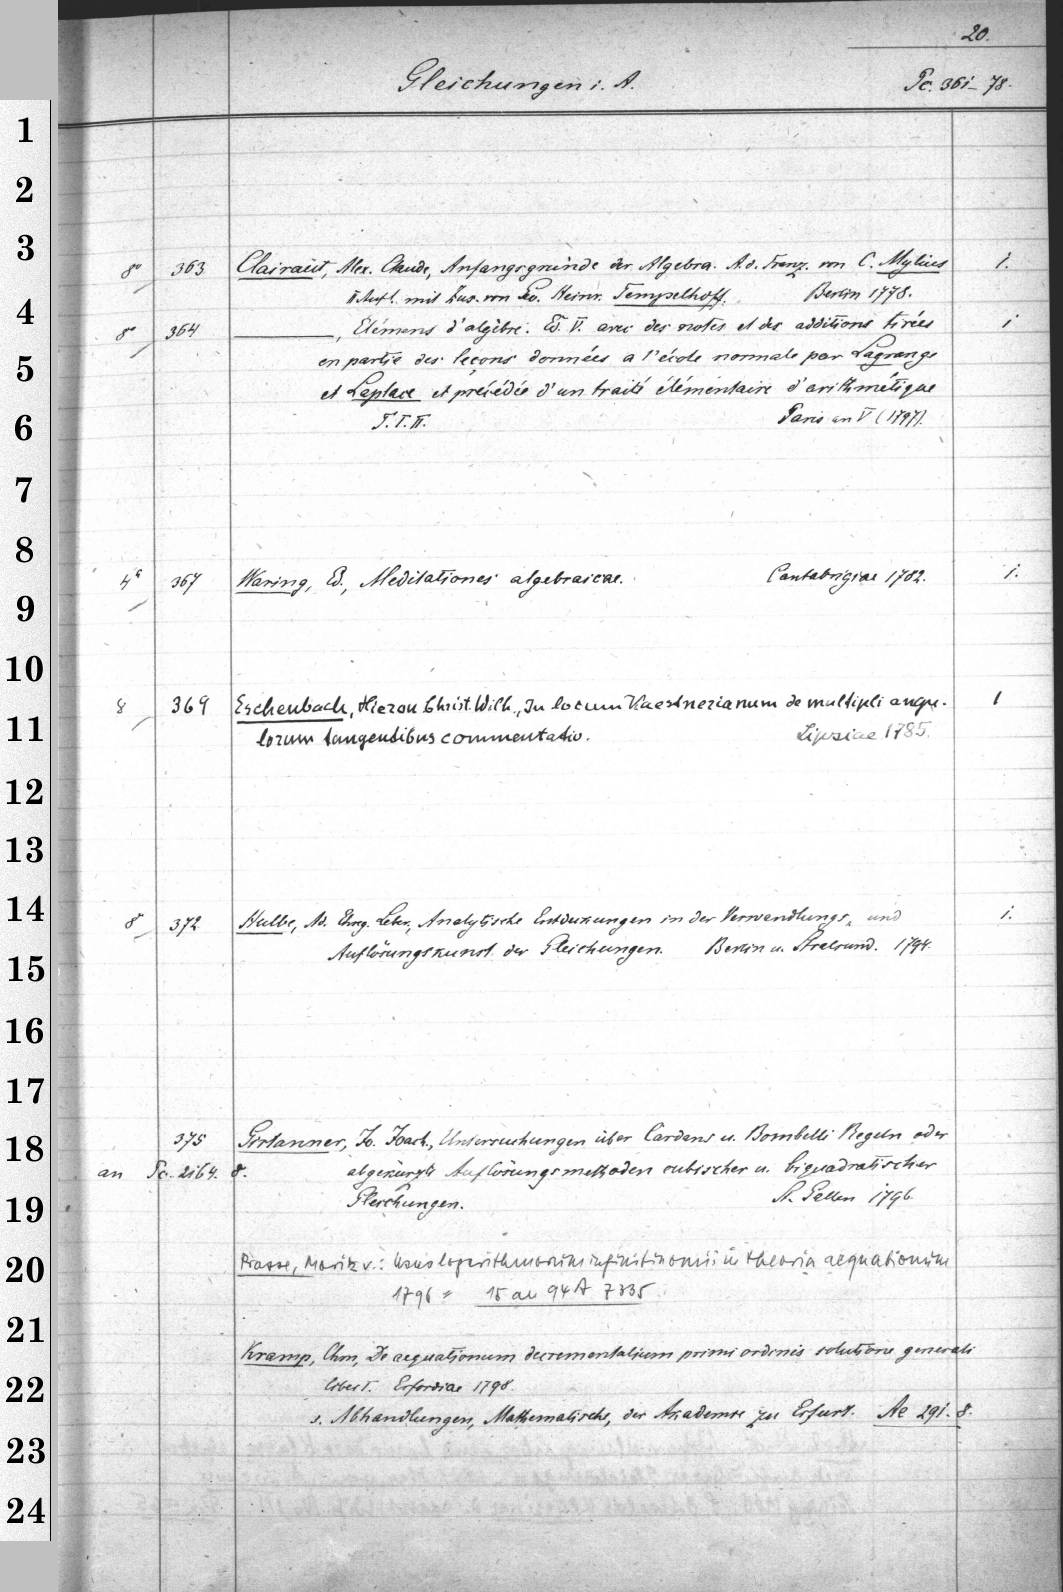 20.
Gleichungen i. A. Pc. 361–78.
1
2
3
8° 363 Clairaut, Alex. Claude, Anfangsgründe der Algebra. A. d. Franz. von C. Mylius 1.
II Aufl. mit Zus. von Ge. Heinr. Tempelhoff. Berlin 1778.
4
8° 364 ———, Élémens d'algèbre. Ed. V. avec des notes et des additions tirées 1
5
en partie des leçons données a l'école normale par Lagrange
et Laplace et précédée d'un traité élémentaire d'arithmétique
6
T. I. II. Paris an V (1797).
7
8
4° 367 Waring, Ed., Meditationes algebraicae. Cantabrigiae 1782. 1.
9
10
8 369 Eschenbach, Hieron Christ. Wilh., In locum Kaestnerianum de multipli angu- 1
11
lorum tangentibus commentatio. Lipsiae 1785.
12
13
14
8° 372 Hulbe, Ad. Ehreg. Lebr., Analytische Entdeckungen in der Verwandlungs- und 1.
15
Auflösungskunst der Gleichungen. Berlin u. Stralsund. 1794.
16
17
18
375 Girtanner, Jo. Joach., Untersuchungen über Cardans u. Bombelli Regeln oder
an Pc. 2164. 8. abgekürzte Auflösungsmethoden cubischer u. biquadratischer
19
Gleichungen. St. Gallen 1796
20
Prasse, Moritz v.: Usus logarithmorum infinitinomii in theoria aequationum
1796 = 15 an 94 A 7335
21
Kramp, Chn, De aequationum decrementalium primi ordinis solutione generali
22
liber I. Erfordiae 1798.
s. Abhandlungen, Mathematische, der Akademie zu Erfurt. Ae 291. 8.
23
24